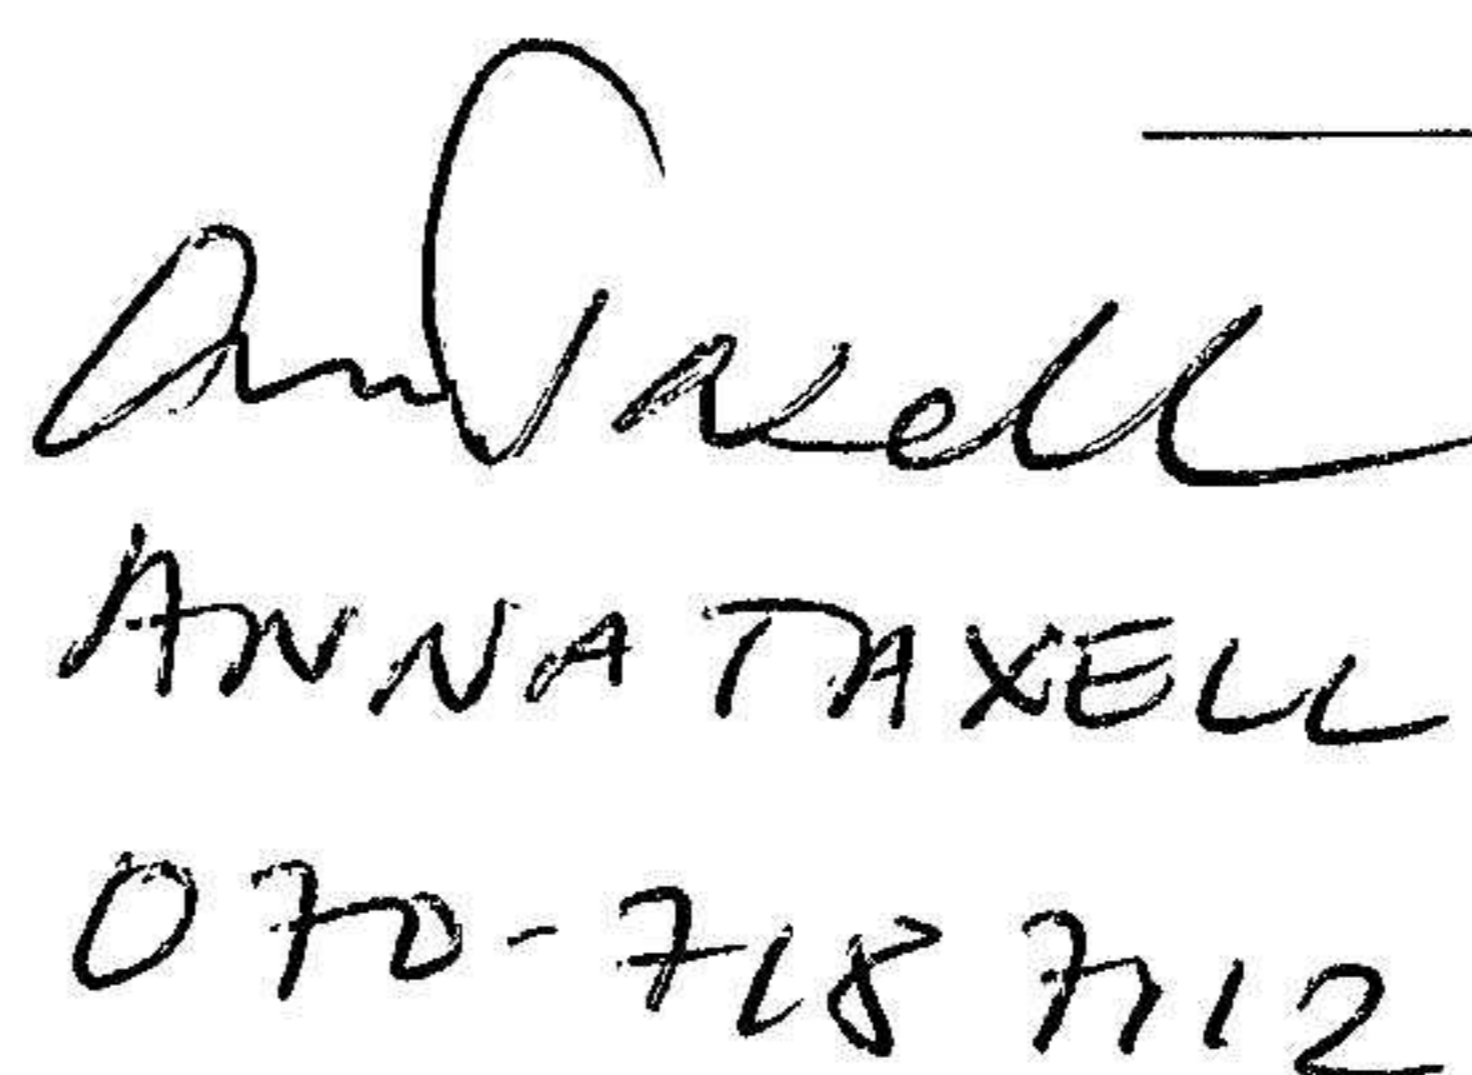 Ann Taxell
ANNA TAXELL
070-718 7112